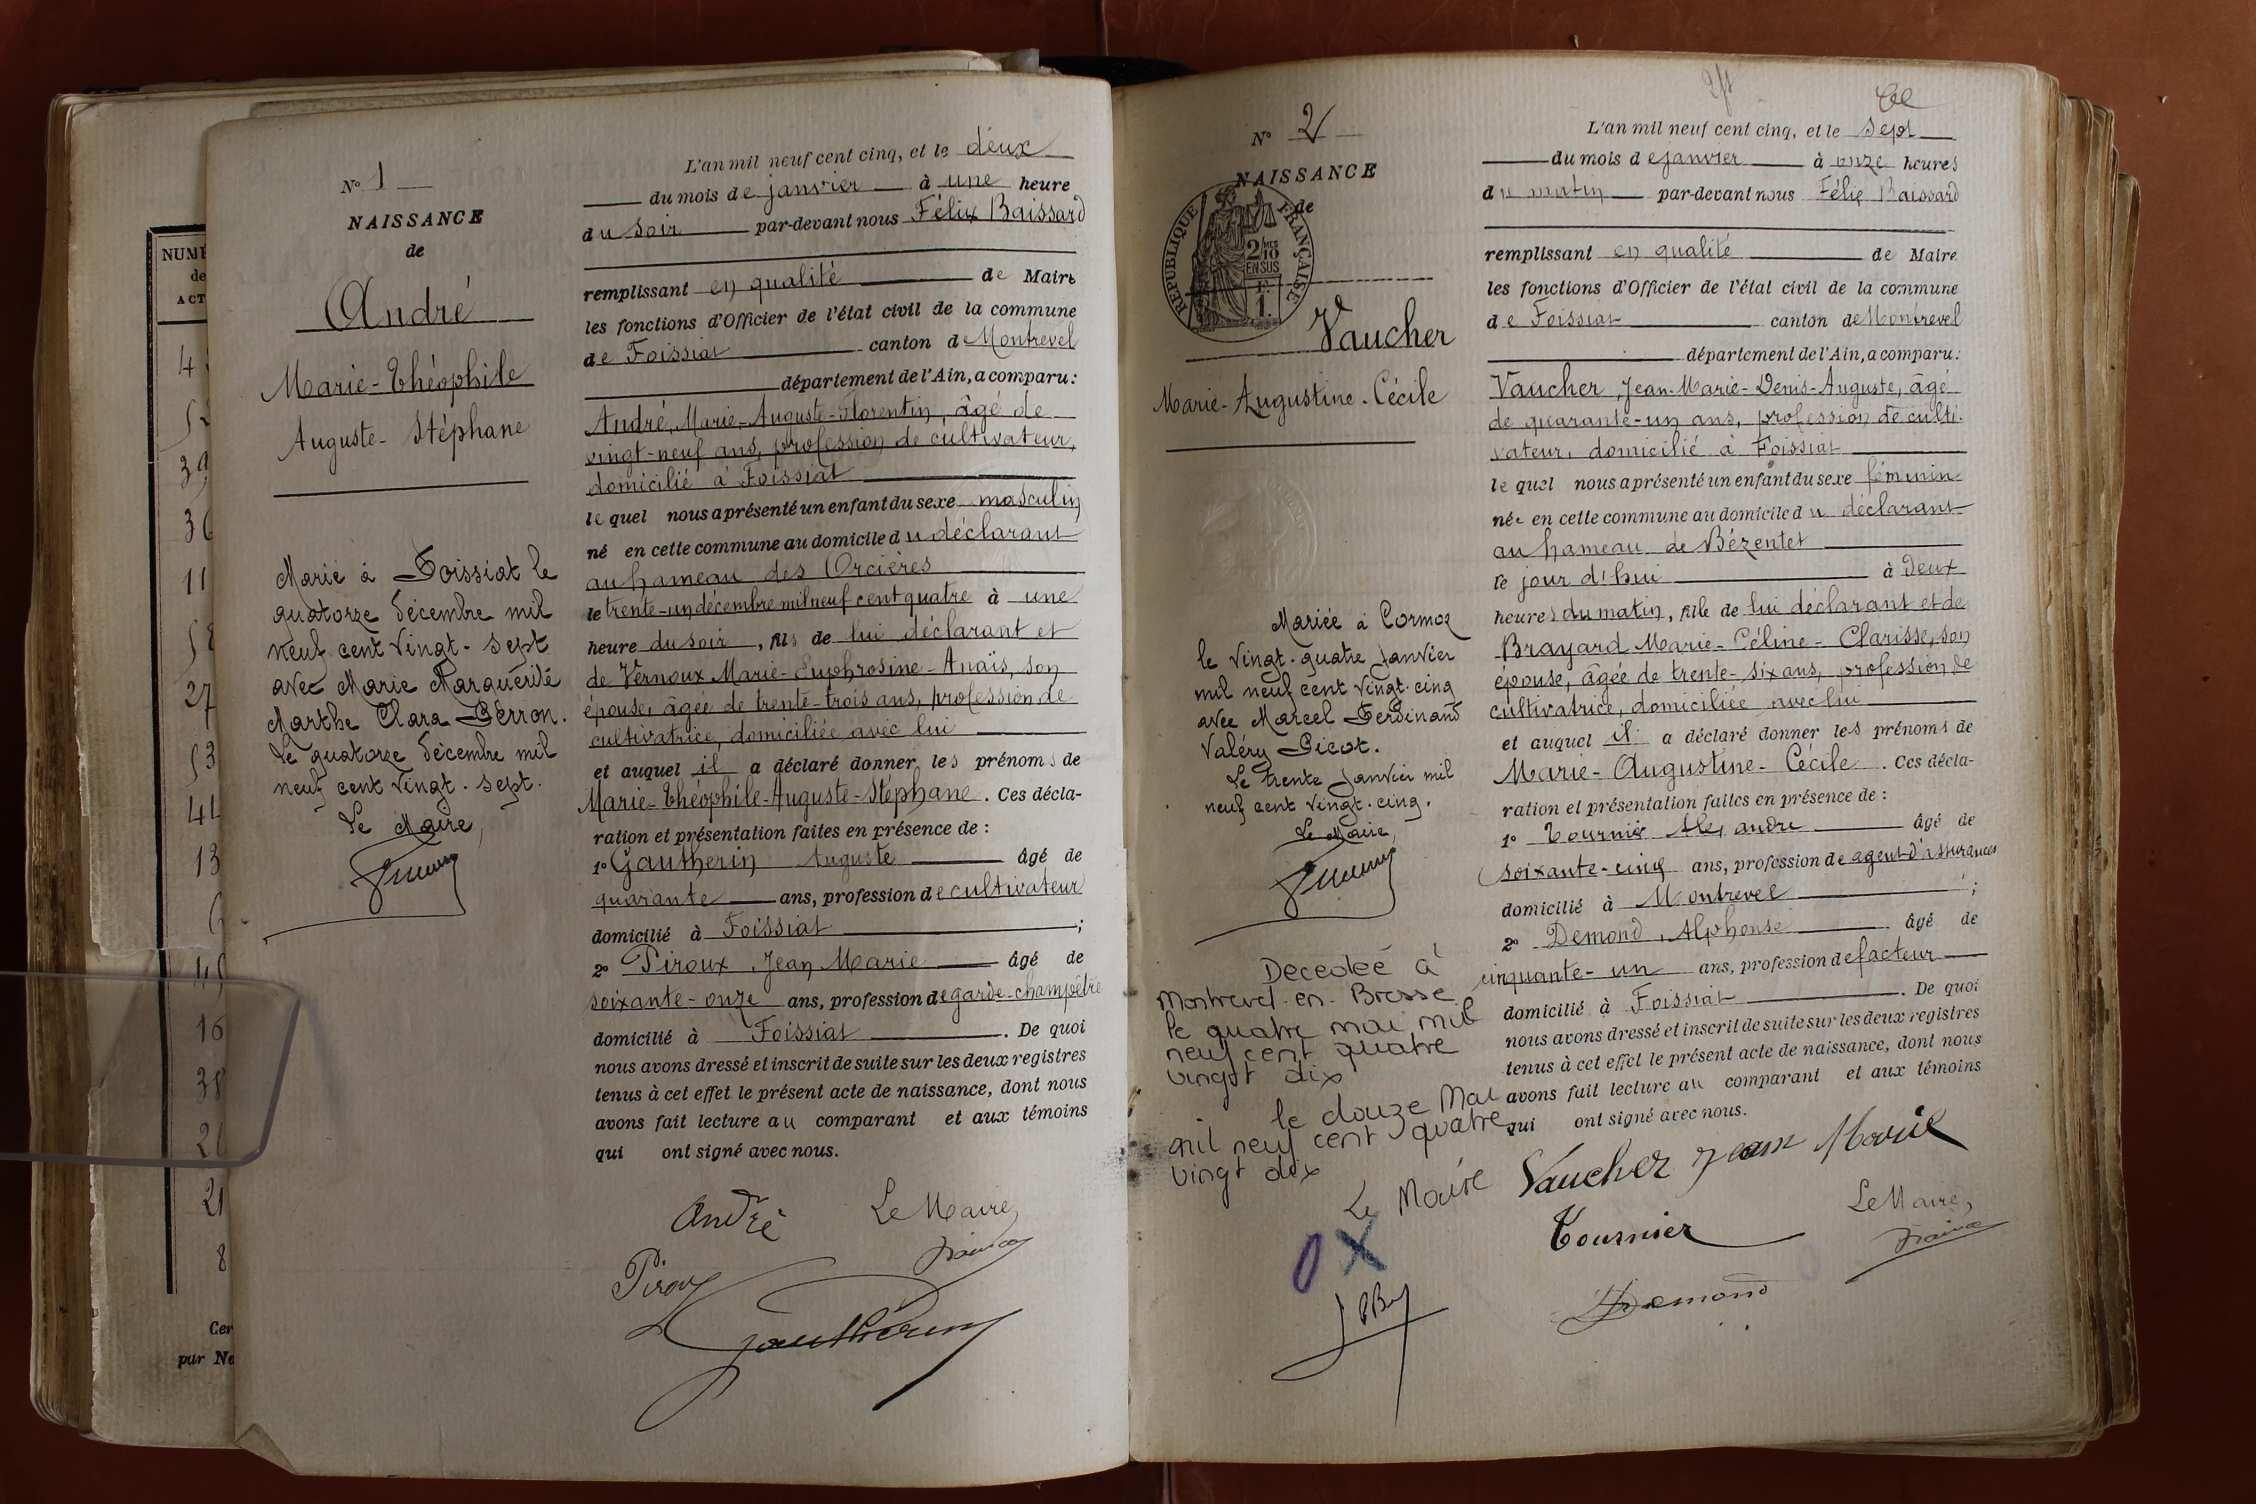 NUMÉ
de
ACT
39
36
11
27
53
41
13
6
16
38
21
8
Cer
par Ne
N° 1
NAISSANCE
de
André
Marie-Théophile
Auguste-Stéphane
Marié à Foissiat le
quatorze décembre mil
neuf cent vingt-sept
avec Marie Marguerite
Marthe Clara Perron.
Le quatorze décembre mil
neuf cent vingt-sept.
Le Maire,
L'an mil neuf cent cinq, et le deux
du mois de janvier à une heure
du soir par-devant nous Félix Baissard
remplissant en qualité de Maire
les fonctions d'Officier de l'état civil de la commune
de Foissiat canton de Montrevel
département de l'Ain, a comparu:
André, Marie-Auguste-Florentin, âgé de
vingt-neuf ans, profession de cultivateur,
domicilié à Foissiat
lequel nous a présenté un enfant du sexe masculin
né en cette commune au domicile du déclarant
au hameau des Orcières
le trente-un décembre mil neuf cent quatre à une
heure du soir, fils de lui déclarant et
de Vernoux Marie-Euphrosine-Anaïs, son
épouse, âgée de trente-trois ans, profession de
cultivatrice, domiciliée avec lui
et auquel il a déclaré donner les prénoms de
Marie-Théophile-Auguste-Stéphane. Ces décla-
ration et présentation faites en présence de :
1° Gautherin Auguste âgé de
quarante ans, profession de cultivateur
domicilié à Foissiat ;
2° Piroux, Jean Marie âgé de
soixante-onze ans, profession de garde-champêtre
domicilié à Foissiat. De quoi
nous avons dressé et inscrit de suite sur les deux registres
tenus à cet effet le présent acte de naissance, dont nous
avons fait lecture au comparant et aux témoins
qui ont signé avec nous.
André Le Maire,
Piroux
Gautherin
N° 2
NAISSANCE
de
RÉPUBLIQUE FRANÇAISE
2/10
EN SUS
1.
Vaucher
Marie-Augustine-Cécile
Mariée à Cormoz
le vingt-quatre janvier
mil neuf cent vingt-cinq
avec Marcel Ferdinand
Valéry Picot.
Le trente janvier mil
neuf cent vingt-cinq.
Le Maire,
Decedeé à
Montrevel-en-Bresse
le quatre mai mil
neuf cent quatre
vingt dix
le douze Mai
mil neuf cent quatre
vingt dix
Le Maire
L'an mil neuf cent cinq, et le sept
du mois de janvier à onze heures
du matin par-devant nous Félix Baissard
remplissant en qualité de Maire
les fonctions d'Officier de l'état civil de la commune
de Foissiat canton de Montrevel
département de l'Ain, a comparu:
Vaucher, Jean-Marie-Denis-Auguste, âgé
de quarante-un ans, profession de culti-
vateur, domicilié à Foissiat
lequel nous a présenté un enfant du sexe féminin
née en cette commune au domicile du déclarant
au hameau de Bézentet
le jour d'hui à deux
heures du matin, fille de lui déclarant et de
Brayard Marie-Céline-Clarisse, son
épouse, âgée de trente-six ans, profession de
cultivatrice, domiciliée avec lui
et auquel il a déclaré donner les prénoms de
Marie-Augustine-Cécile. Ces décla-
ration et présentation faites en présence de :
1° Tournier Alexandre âgé de
soixante-cinq ans, profession de agent d'assurances
domicilié à Montrevel ;
2° Demond, Alphonse âgé de
cinquante-un ans, profession de facteur
domicilié à Foissiat. De quoi
nous avons dressé et inscrit de suite sur les deux registres
tenus à cet effet le présent acte de naissance, dont nous
avons fait lecture au comparant et aux témoins
qui ont signé avec nous.
Vaucher Jean Marie
Tournier Le Maire,
Demond